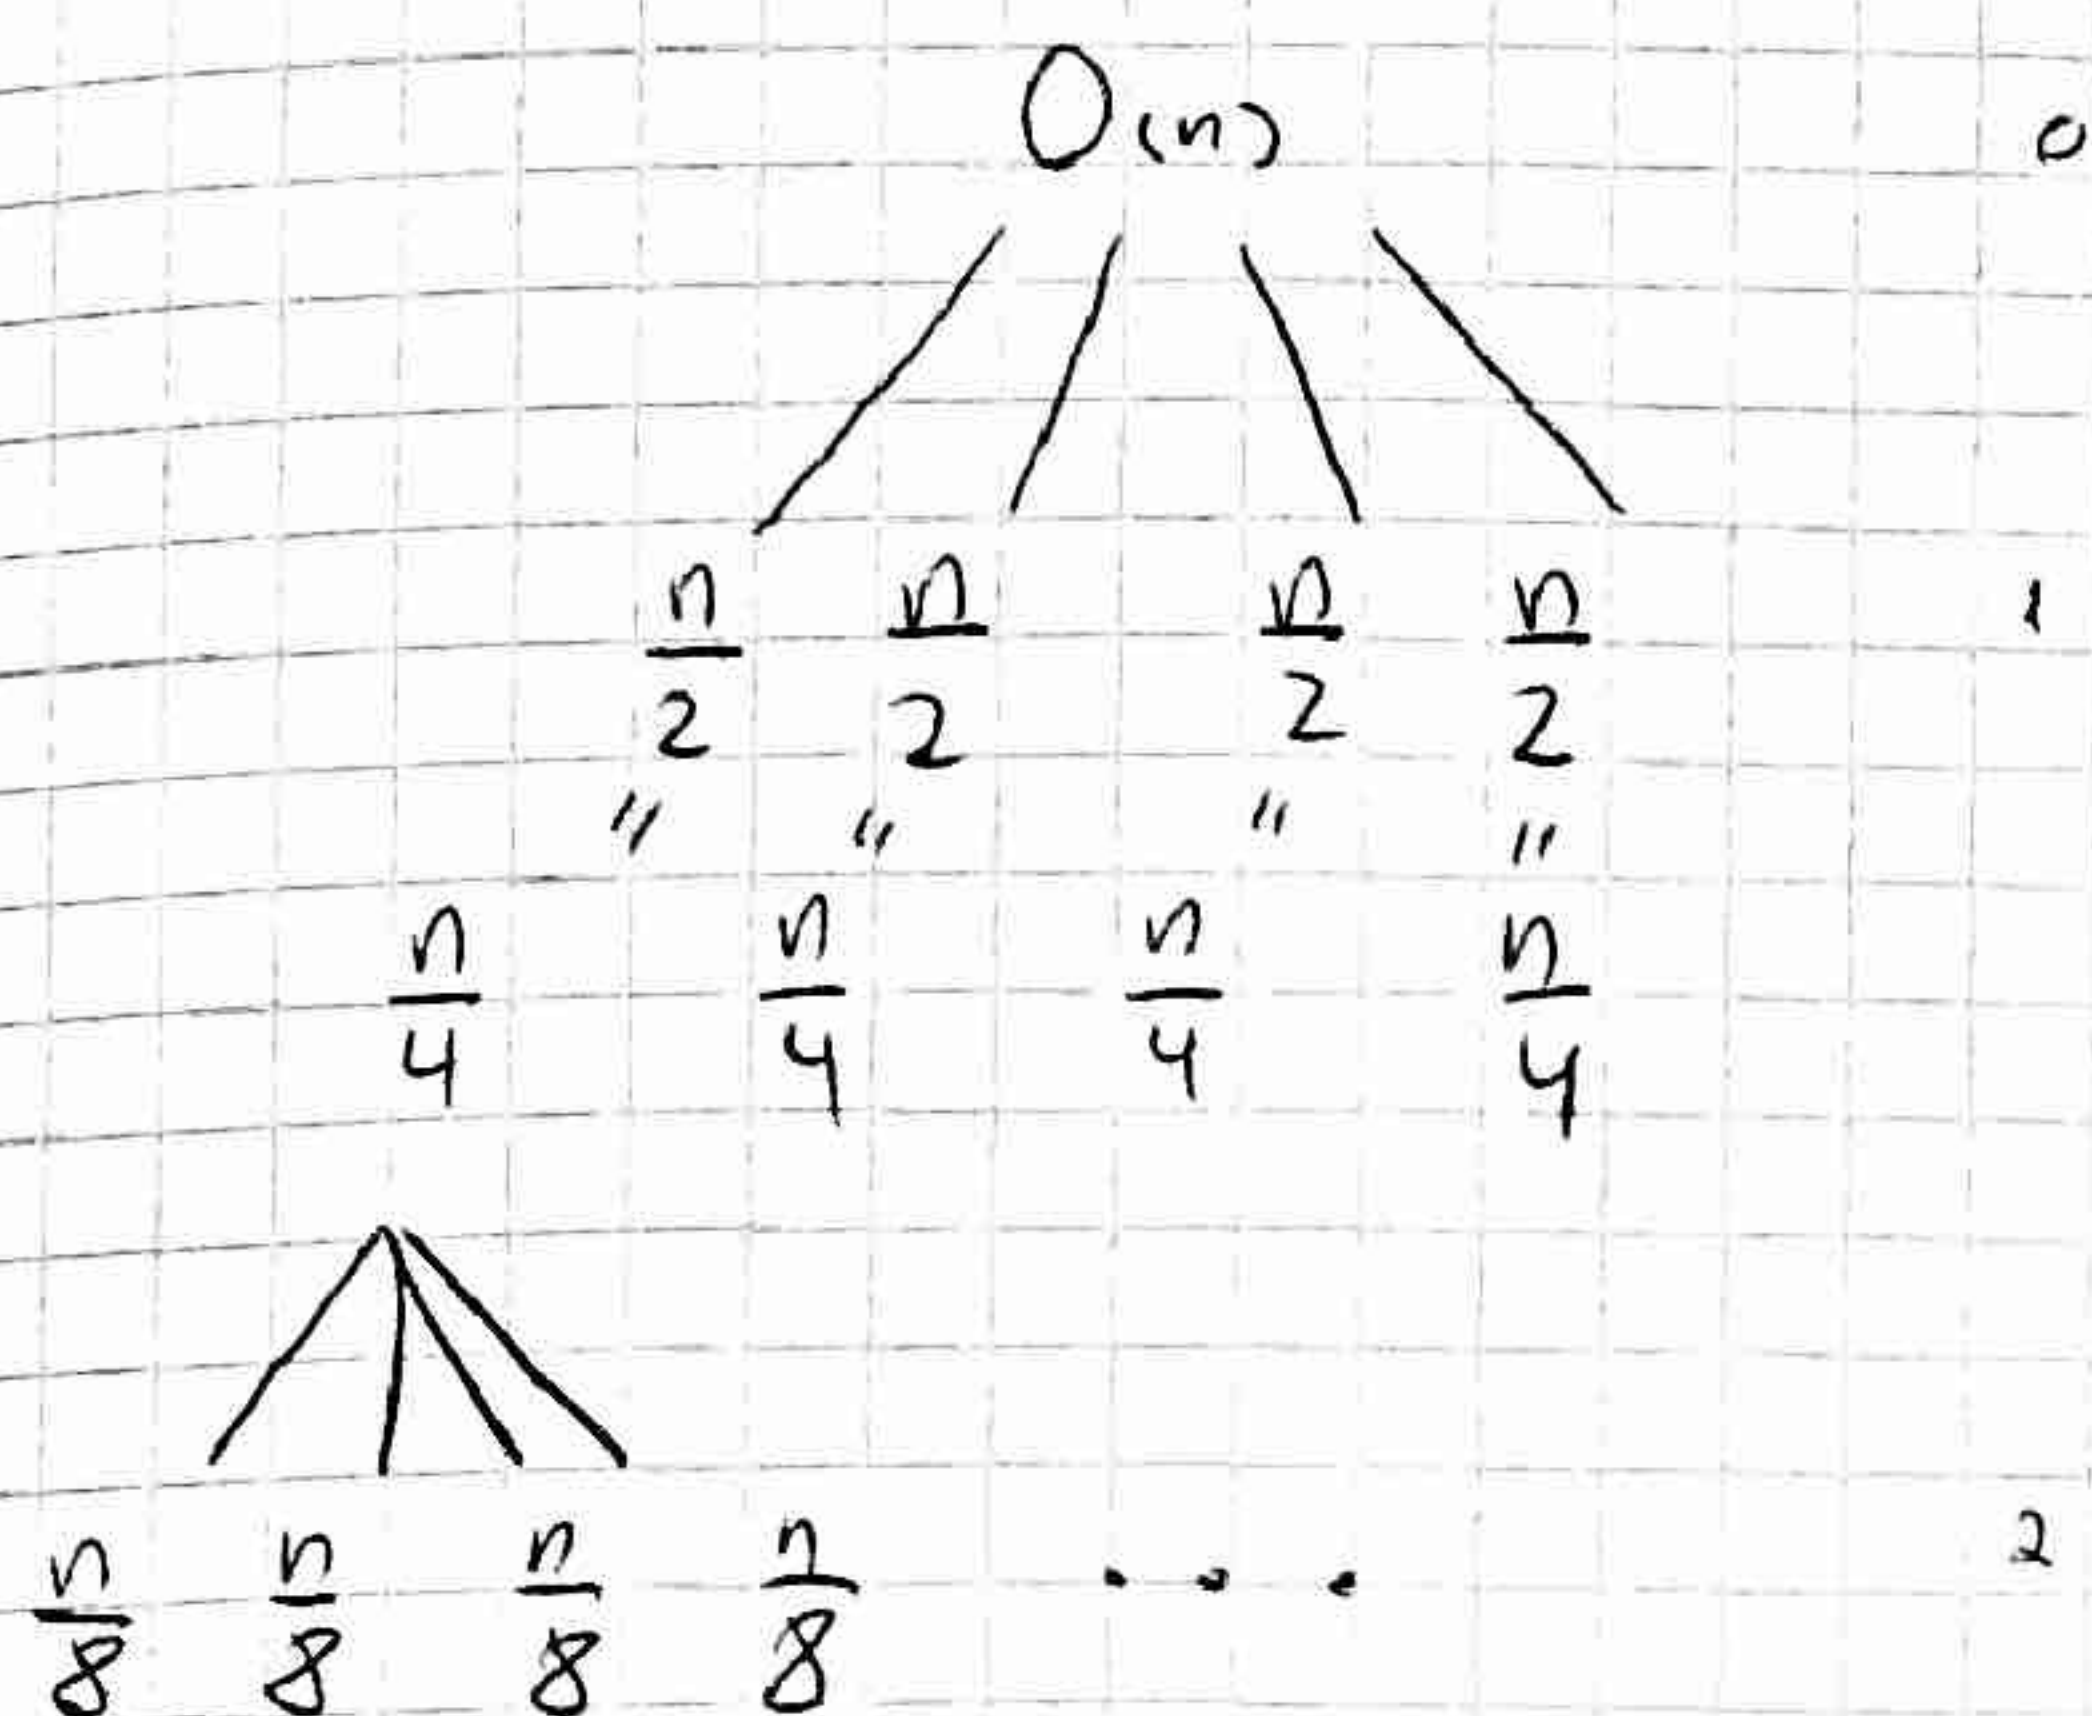 O(n) 0
n/2 n/2 n/2 n/2 1
" " " "
n/4 n/4 n/4 n/4
n/8 n/8 n/8 n/8 ... 2